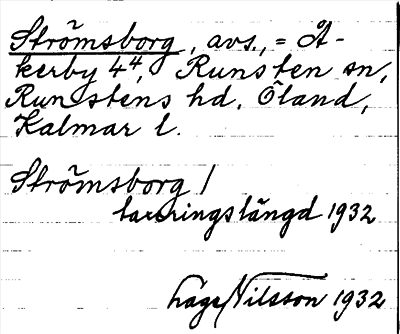 Strömsborg, avs., = Å-
kerby 4⁴, Runsten sn,
Runstens hd. Öland,
Kalmar l.
Strömsborg/
taxeringslängd 1932
Nilsson 1932